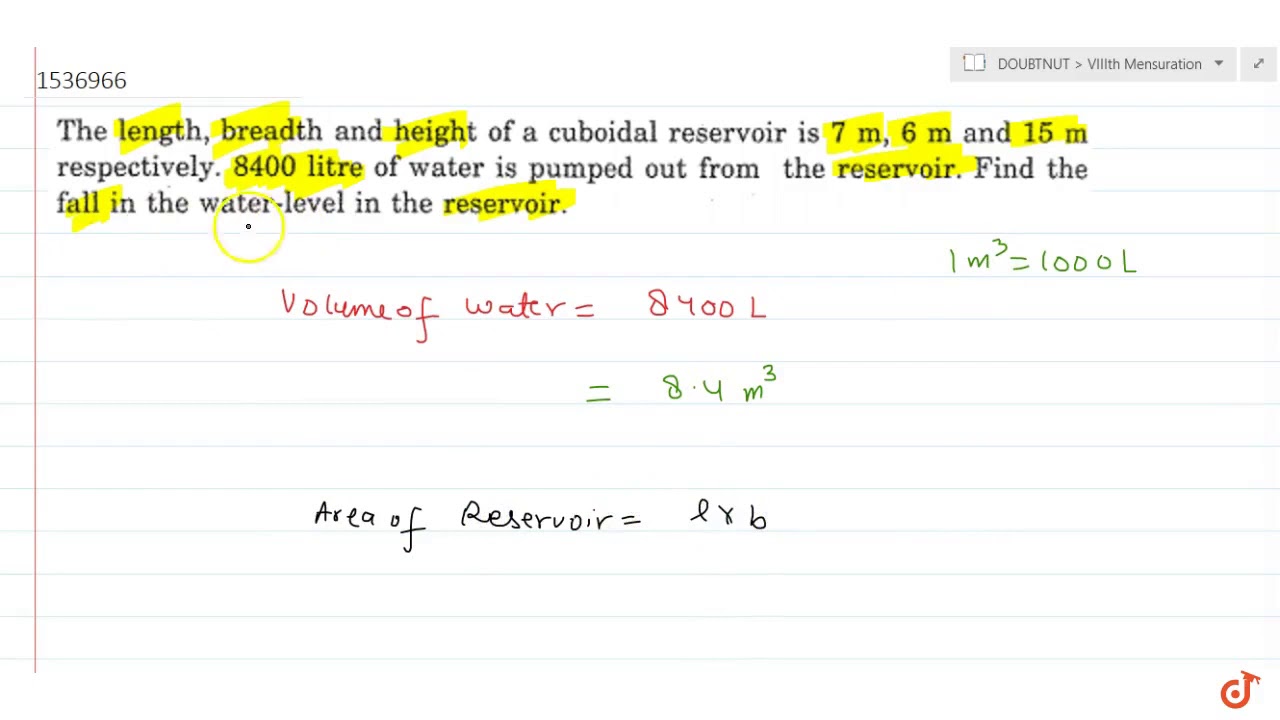 DOUBTNUT > VIIIth Mensuration
1536966
The length, breadth and height of a cuboidal reservoir is 7 m, 6 m and 15 m
respectively. 8400 litre of water is pumped out from the reservoir. Find the
fall in the water-level in the reservoir.
1 m³ = 1000 L
Volume of water = 8400 L
= 8.4 m³
Area of Reservoir = l × b